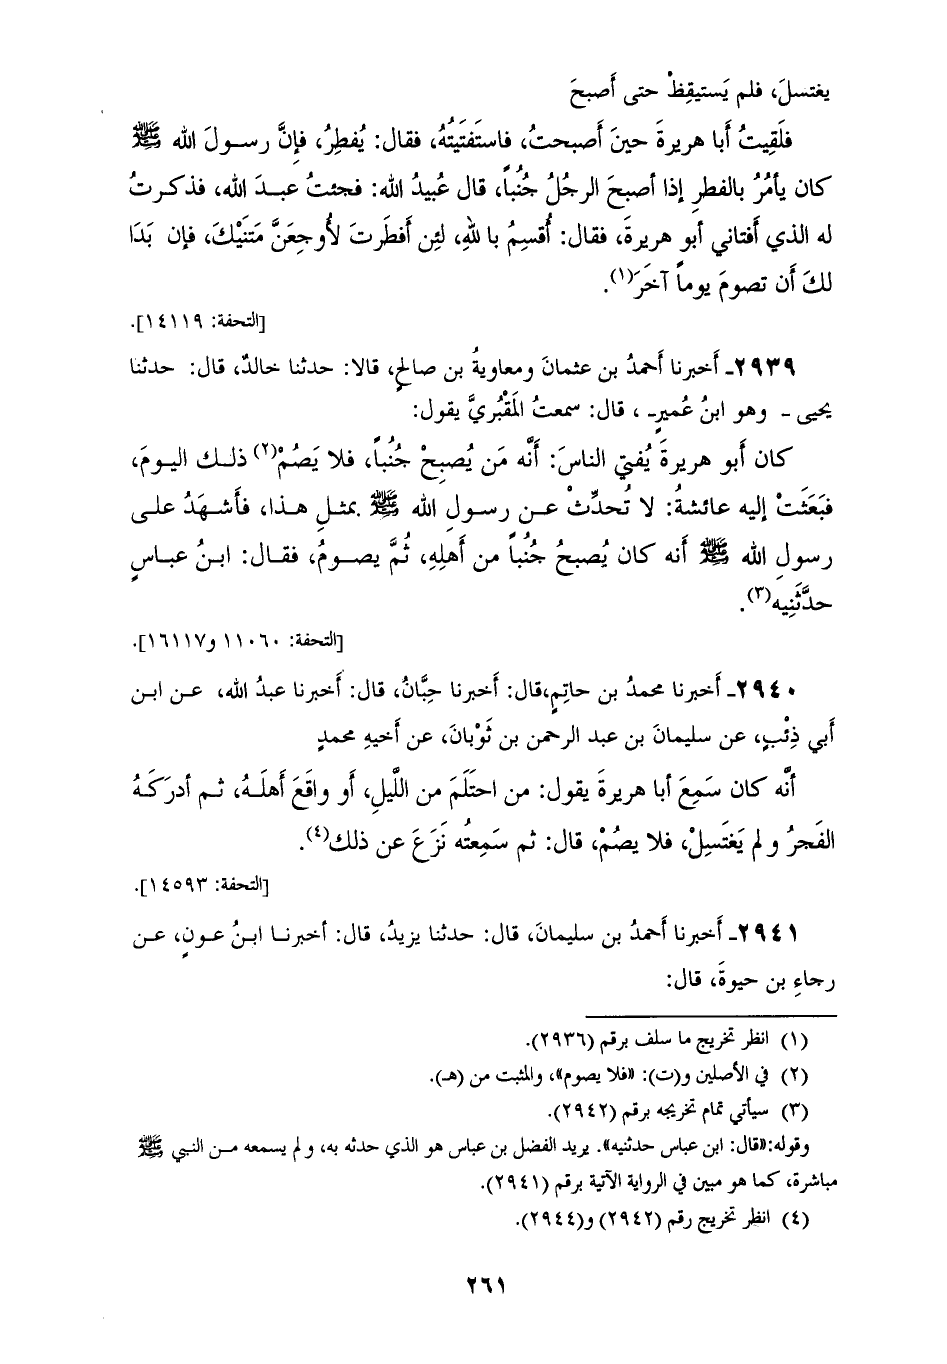 يغتسلَ، فلم يَستيقِظْ حتى أَصبحَ
فلَقِيتُ أَبا هريرةَ حينَ أَصبحتُ، فاستَفتَيتُهُ، فقال: يُفطِرُ، فإنَّ رسولَ الله ﷺ
كان يأمُرُ بالفطرِ إذا أصبحَ الرجُلُ جُنُباً، قال عُبيدُ الله: فجئتُ عبدَ الله، فذكرتُ
له الذي أَفتاني أبو هريرةَ، فقال: أُقسِمُ باللهِ، لئِن أَفطَرتَ لأُوجِعَنَّ مَتنَيْكَ، فإن بَدَا
لكَ أَن تصومَ يوماً آخَرَ(١).
[التحفة: ١٤١١٩].
٢٩٣٩ـ أَخبرنا أَحمدُ بن عثمانَ ومعاويةُ بن صالحٍ، قالا: حدثنا خالدٌ، قال: حدثنا
يحيى ـ وهو ابنُ عُميرٍـ ، قال: سمعتُ المَقْبُريَّ يقول:
كان أَبو هريرةَ يُفتي الناسَ: أَنَّه مَن يُصبِحْ جُنُباً، فلا يَصُمْ(٢) ذلك اليومَ،
فبَعَثَتْ إليه عائشةُ: لا تُحدِّثْ عن رسولِ الله ﷺ بمثلِ هذا، فأَشهَدُ على
رسولِ الله ﷺ أَنه كان يُصبحُ جُنُباً من أَهلِهِ، ثُمَّ يصومُ، فقال: ابنُ عباسٍ
حدَّثَنِيه(٣).
[التحفة: ١١٠٦٠ و١٦١١٧].
٢٩٤٠ـ أَخبرنا محمدُ بن حاتِمٍ،قال: أَخبرنا حِبَّانُ، قال: أَخبرنا عبدُ الله، عن ابن
أَبي ذِئْبٍ، عن سليمانَ بن عبد الرحمن بن ثَوْبانَ، عن أَخيهِ محمدٍ
أَنَّه كان سَمِعَ أبا هريرةَ يقول: من احتَلَمَ من اللَّيلِ، أَو واقَعَ أَهلَهُ، ثم أدرَكَهُ
الفَجرُ ولم يَغتَسِلْ، فلا يصُمْ، قال: ثم سَمِعتُه نَزَعَ عن ذلك(٤).
[التحفة: ١٤٥٩٣].
٢٩٤١ـ أَخبرنا أَحمدُ بن سليمانَ، قال: حدثنا يزيدُ، قال: أخبرنا ابنُ عونٍ، عن
رجاءِ بن حيوةَ، قال:
(١) انظر تخريج ما سلف برقم (٢٩٣٦).
(٢) في الأصلين و(ت): «فلا يصوم»، والمثبت من (هـ).
(٣) سيأتي تمام تخريجه برقم (٢٩٤٢).
وقوله:«قال: ابن عباس حدثنيه». يريد الفضل بن عباس هو الذي حدثه به، ولم يسمعه من النبي ﷺ
مباشرة، كما هو مبين في الرواية الآتية برقم (٢٩٤١).
(٤) انظر تخريج رقم (٢٩٤٢) و(٢٩٤٤).
٢٦١